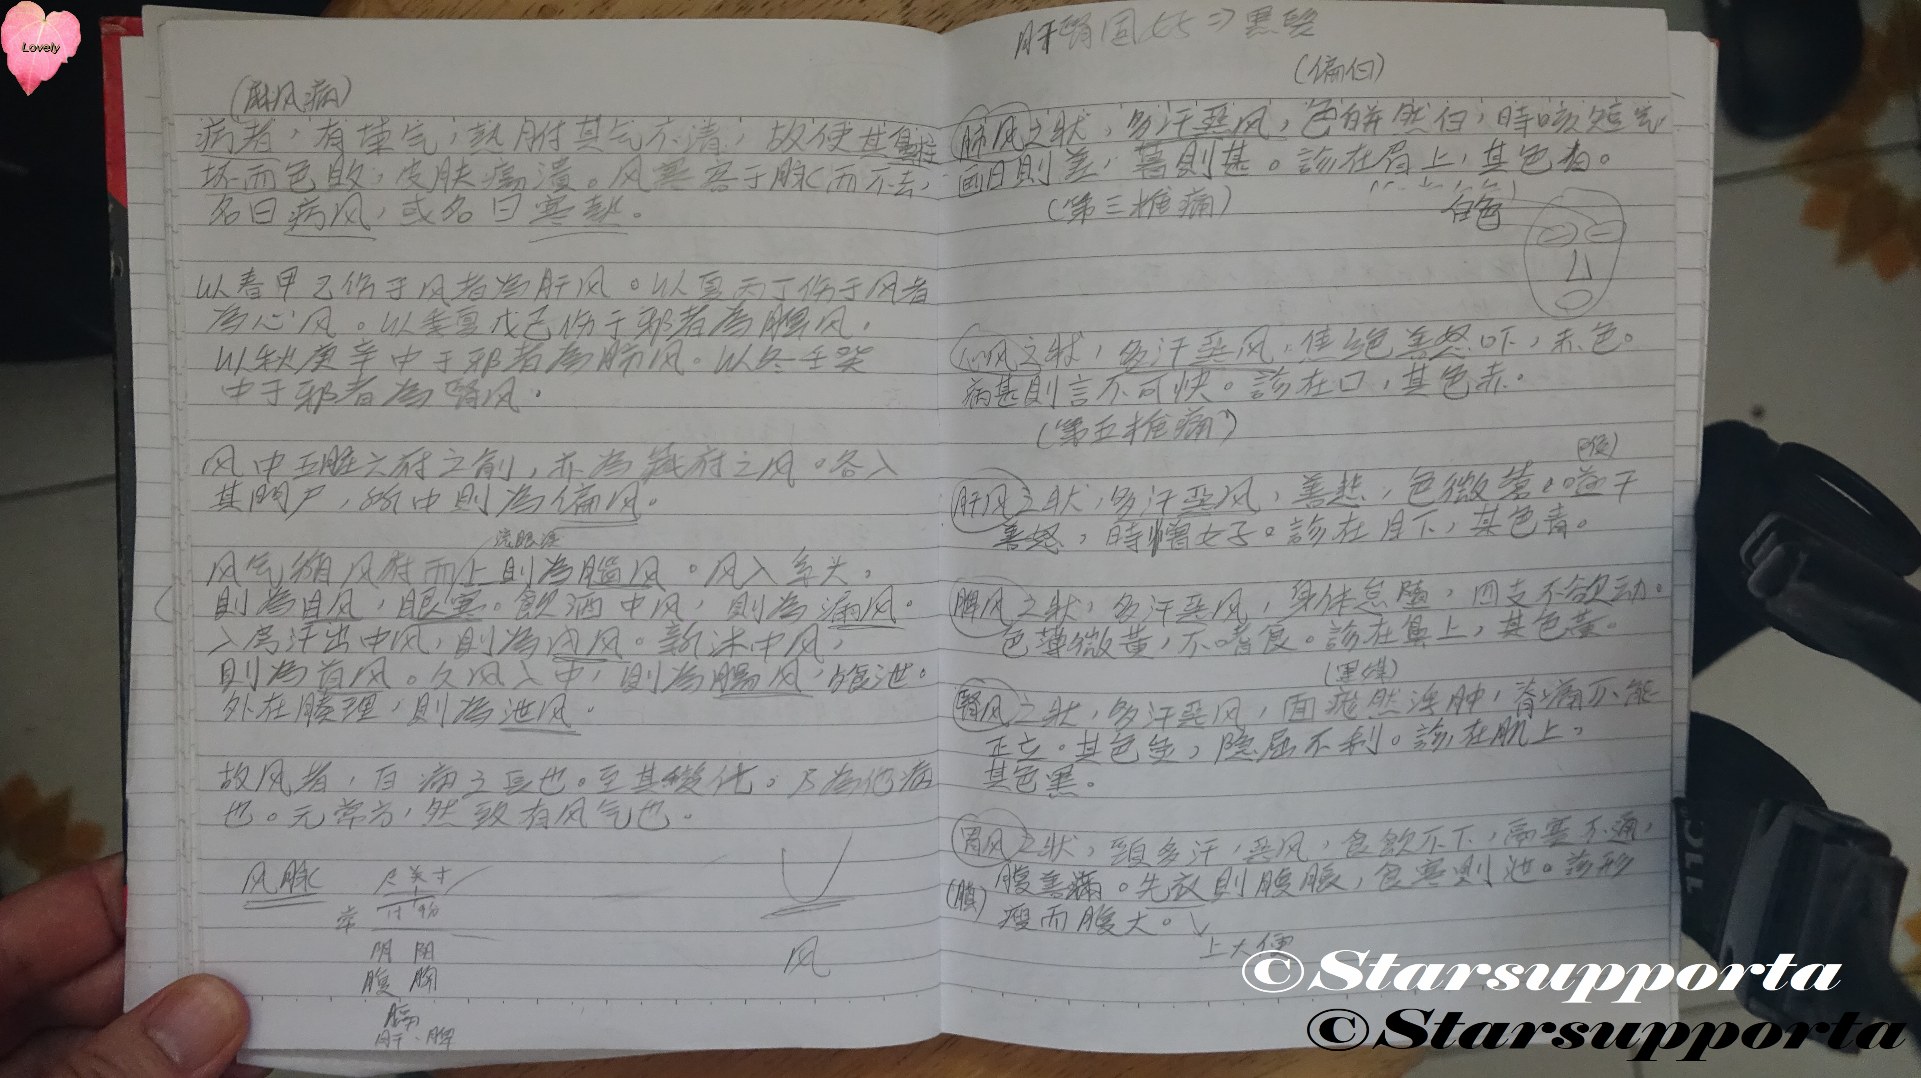 Lovely
(麻风病)
病者，有荣气，热附其气不清，故使其鼻柱
坏而色败，皮肤疡溃。风寒客于脉而不去，
名曰病风，或名曰寒热。
以春甲乙伤于风者為肝风。以夏丙丁伤于风者
為心风。以季夏戊己伤于邪者為脾风。
以秋庚辛中于邪者為肺风。以冬壬癸
中于邪者為腎风。
风中五脏六府之俞，亦為藏府之风。各入
其門户，所中則為偏风。
流眼淚
风气循风府而上則為腦风。风入系头，
則為目风，眼寒。飲酒中风，則為漏风。
入房汗出中风，則為内风。新沐中风，
則為首风。久风入中，則為腸风，飧泄。
外在腠理，則為泄风。
故风者，百病之長也。至其變化。乃為他病
也。无常方，然致有风气也。
风脉
尺关寸
阴 阳
腹 胸
肝、脾
风
肝腎固 => 黑
(偏白)
肺风之狀，多汗恶风，色皏然白，時咳短气
昼日則差，暮則甚。診在眉上，其色白。
(第三椎痛)
白色
心风之狀，多汗恶风，焦绝善怒吓，赤色。
病甚則言不可快。診在口，其色赤。
(第五椎痛)
(喉)
肝风之狀，多汗恶风，善悲，色微苍，嗌干
善怒，時憎女子。診在目下，其色青。
脾风之狀，多汗恶风，身体怠墮，四支不欲动。
色薄微黃，不嗜食。診在鼻上，其色黃。
(黑煤)
腎风之狀，多汗恶风，面痝然浮肿，脊痛不能
正立。其色炱，隐屈不利。診在肌上，
其色黑。
胃风之狀，頸多汗，恶风，食飲不下，鬲塞不通，
腹善滿。失衣則腹脹，食寒則泄。診形
瘦而腹大。
上大便
©Starsupporta
©Starsupporta